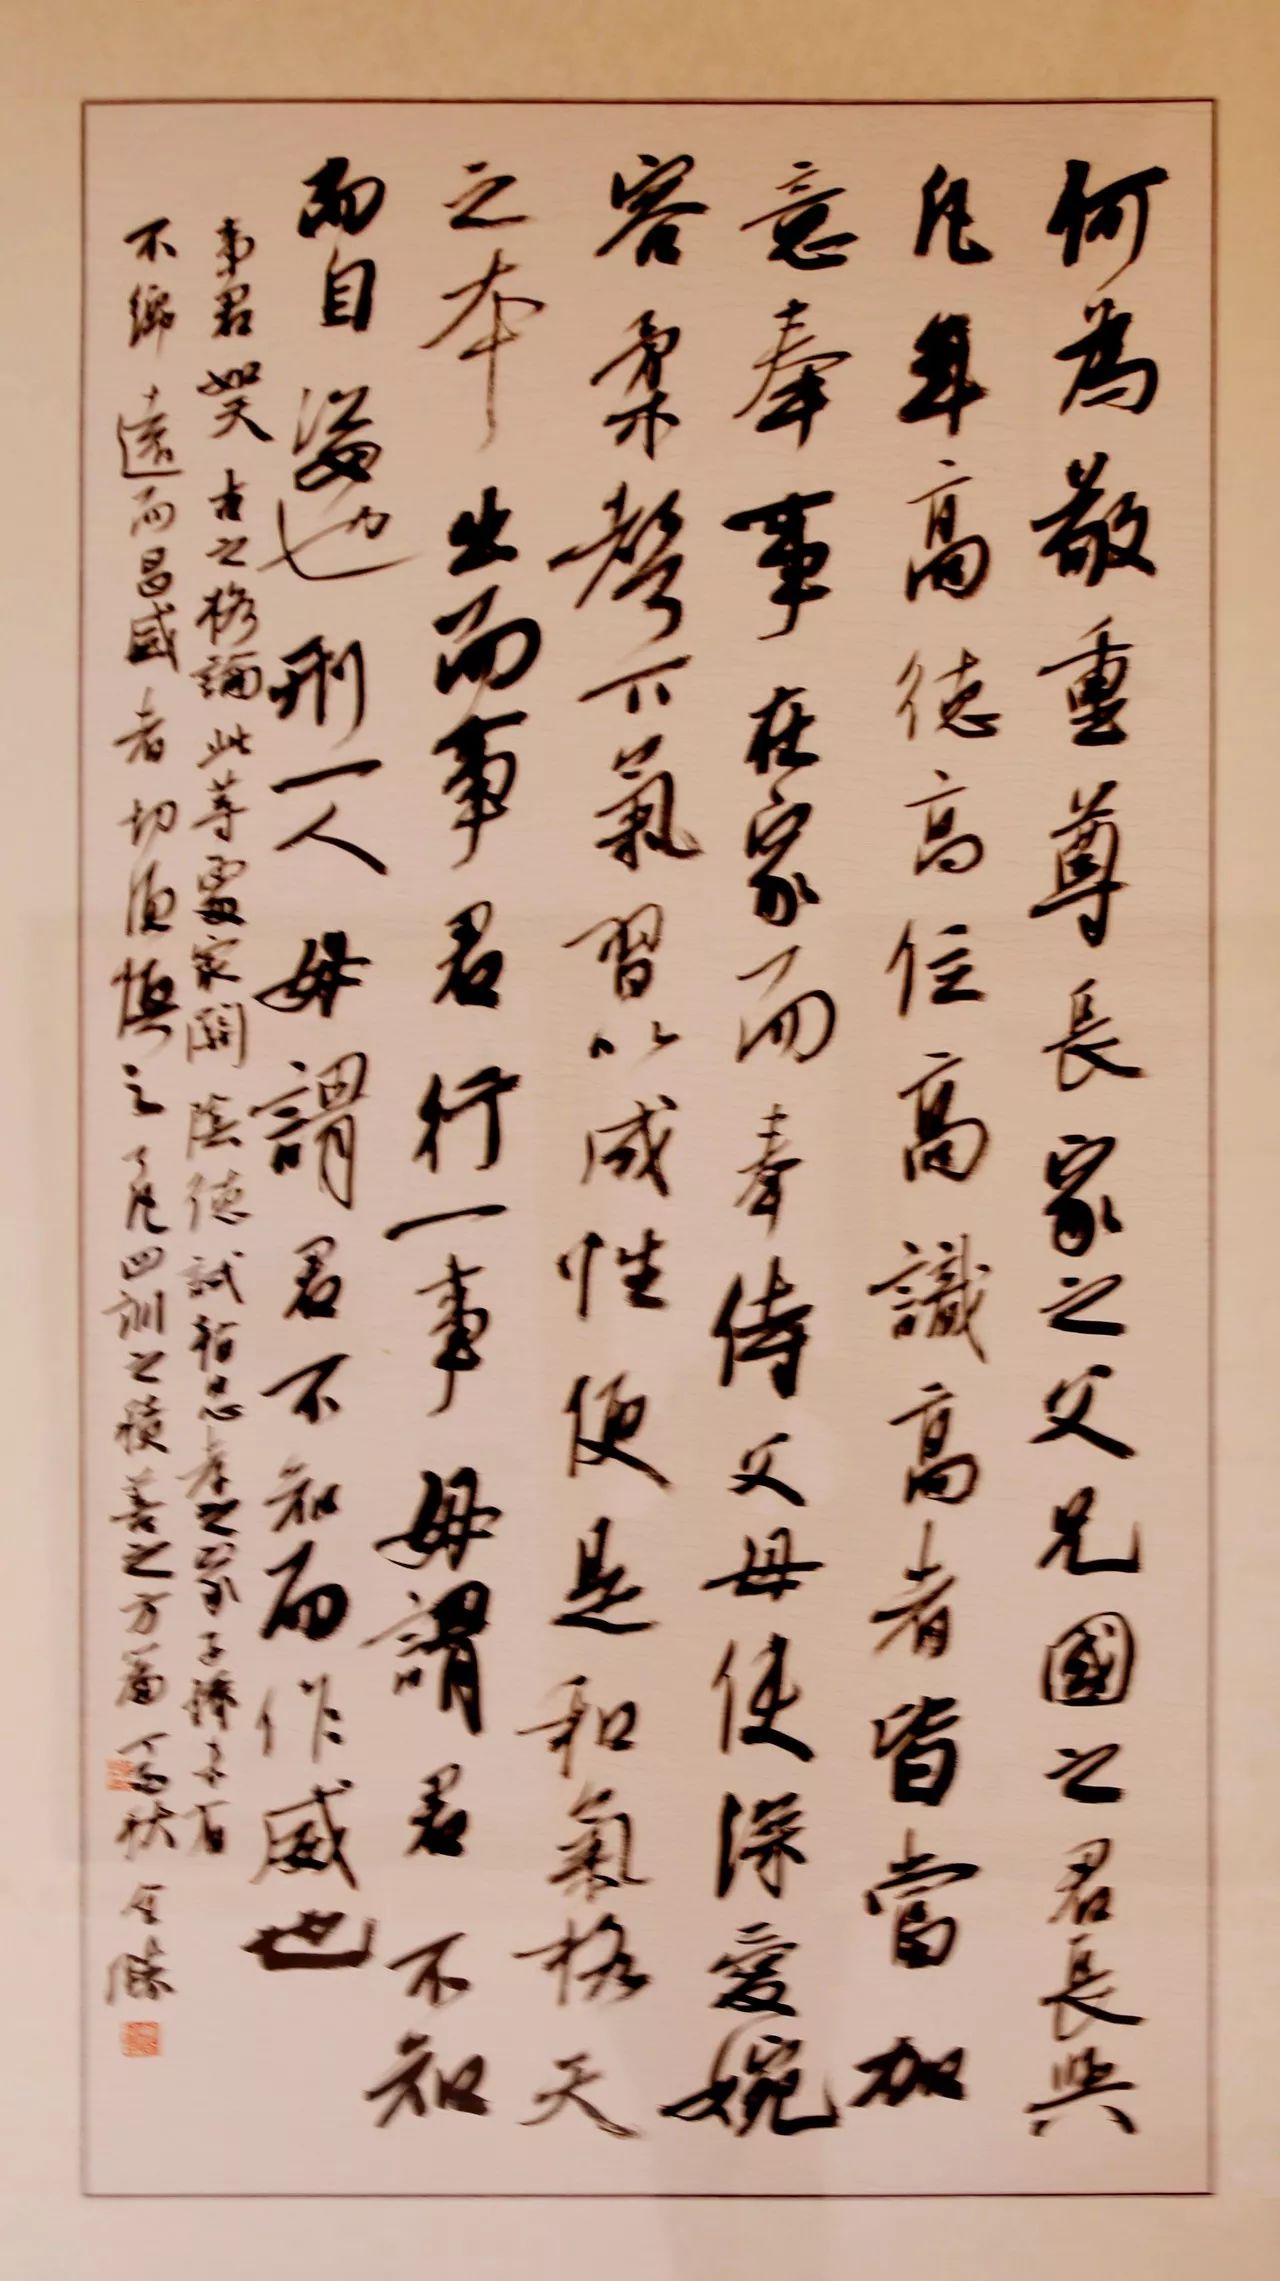 何為敬重尊長家之父兄國之君長與
凡年高德高位高識高者皆當加
意奉事在家而奉侍父母使深愛婉
容柔聲下氣習以成性便是和氣格天
之本出而事君行一事毋謂君不知
而自恣也刑一人毋謂君不知而作威也
事君如天古之格論此等處家關陰德試看忠孝之家子孫未有
不綿遠而昌盛者切須慎之了凡四訓之積善之方篇 秋